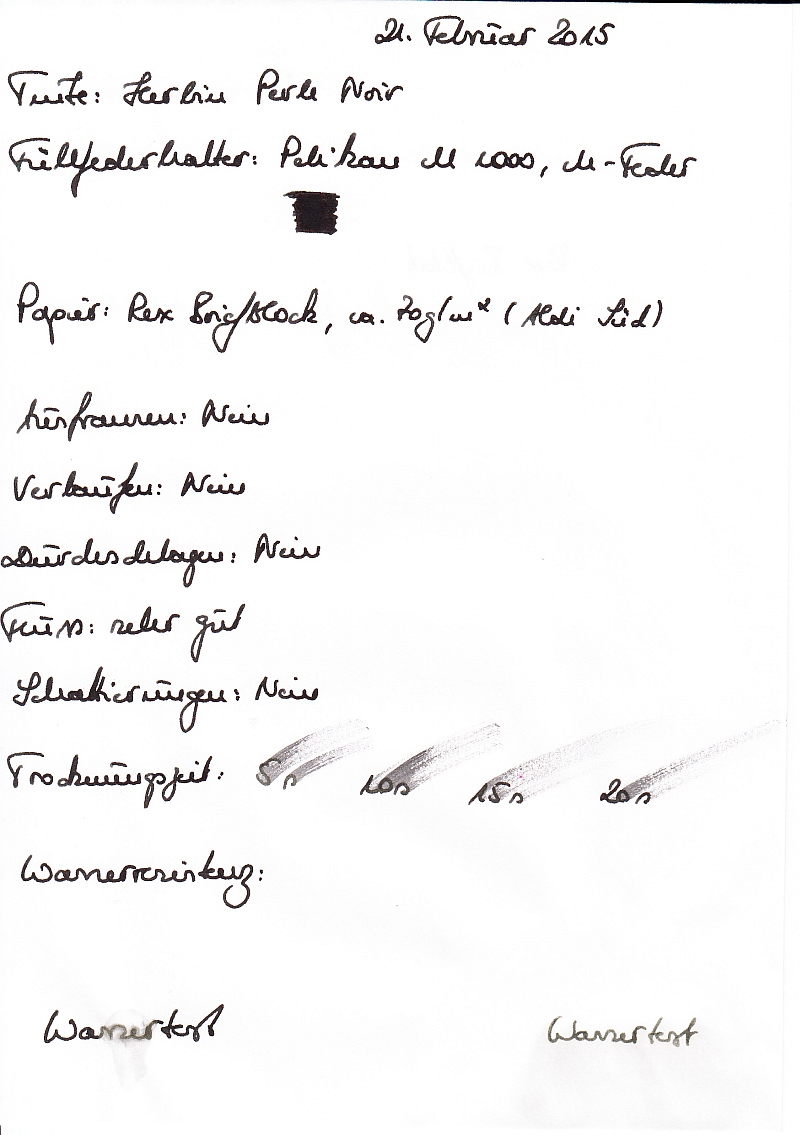 21. Februar 2015
Tinte: Herbin Perle Noir
Füllfederhalter: Pelikan M 1000, M-Feder
Papier: Rex Briefblock, ca. 70g/m² (Aldi Süd)
Ausfransen: Nein
Verlaufen: Nein
Durchschlagen: Nein
Fluss: sehr gut
Schattierungen: Nein
Trocknungszeit: 5s 10s 15s 20s
Wasserresistenz:
Wassertest Wassertest